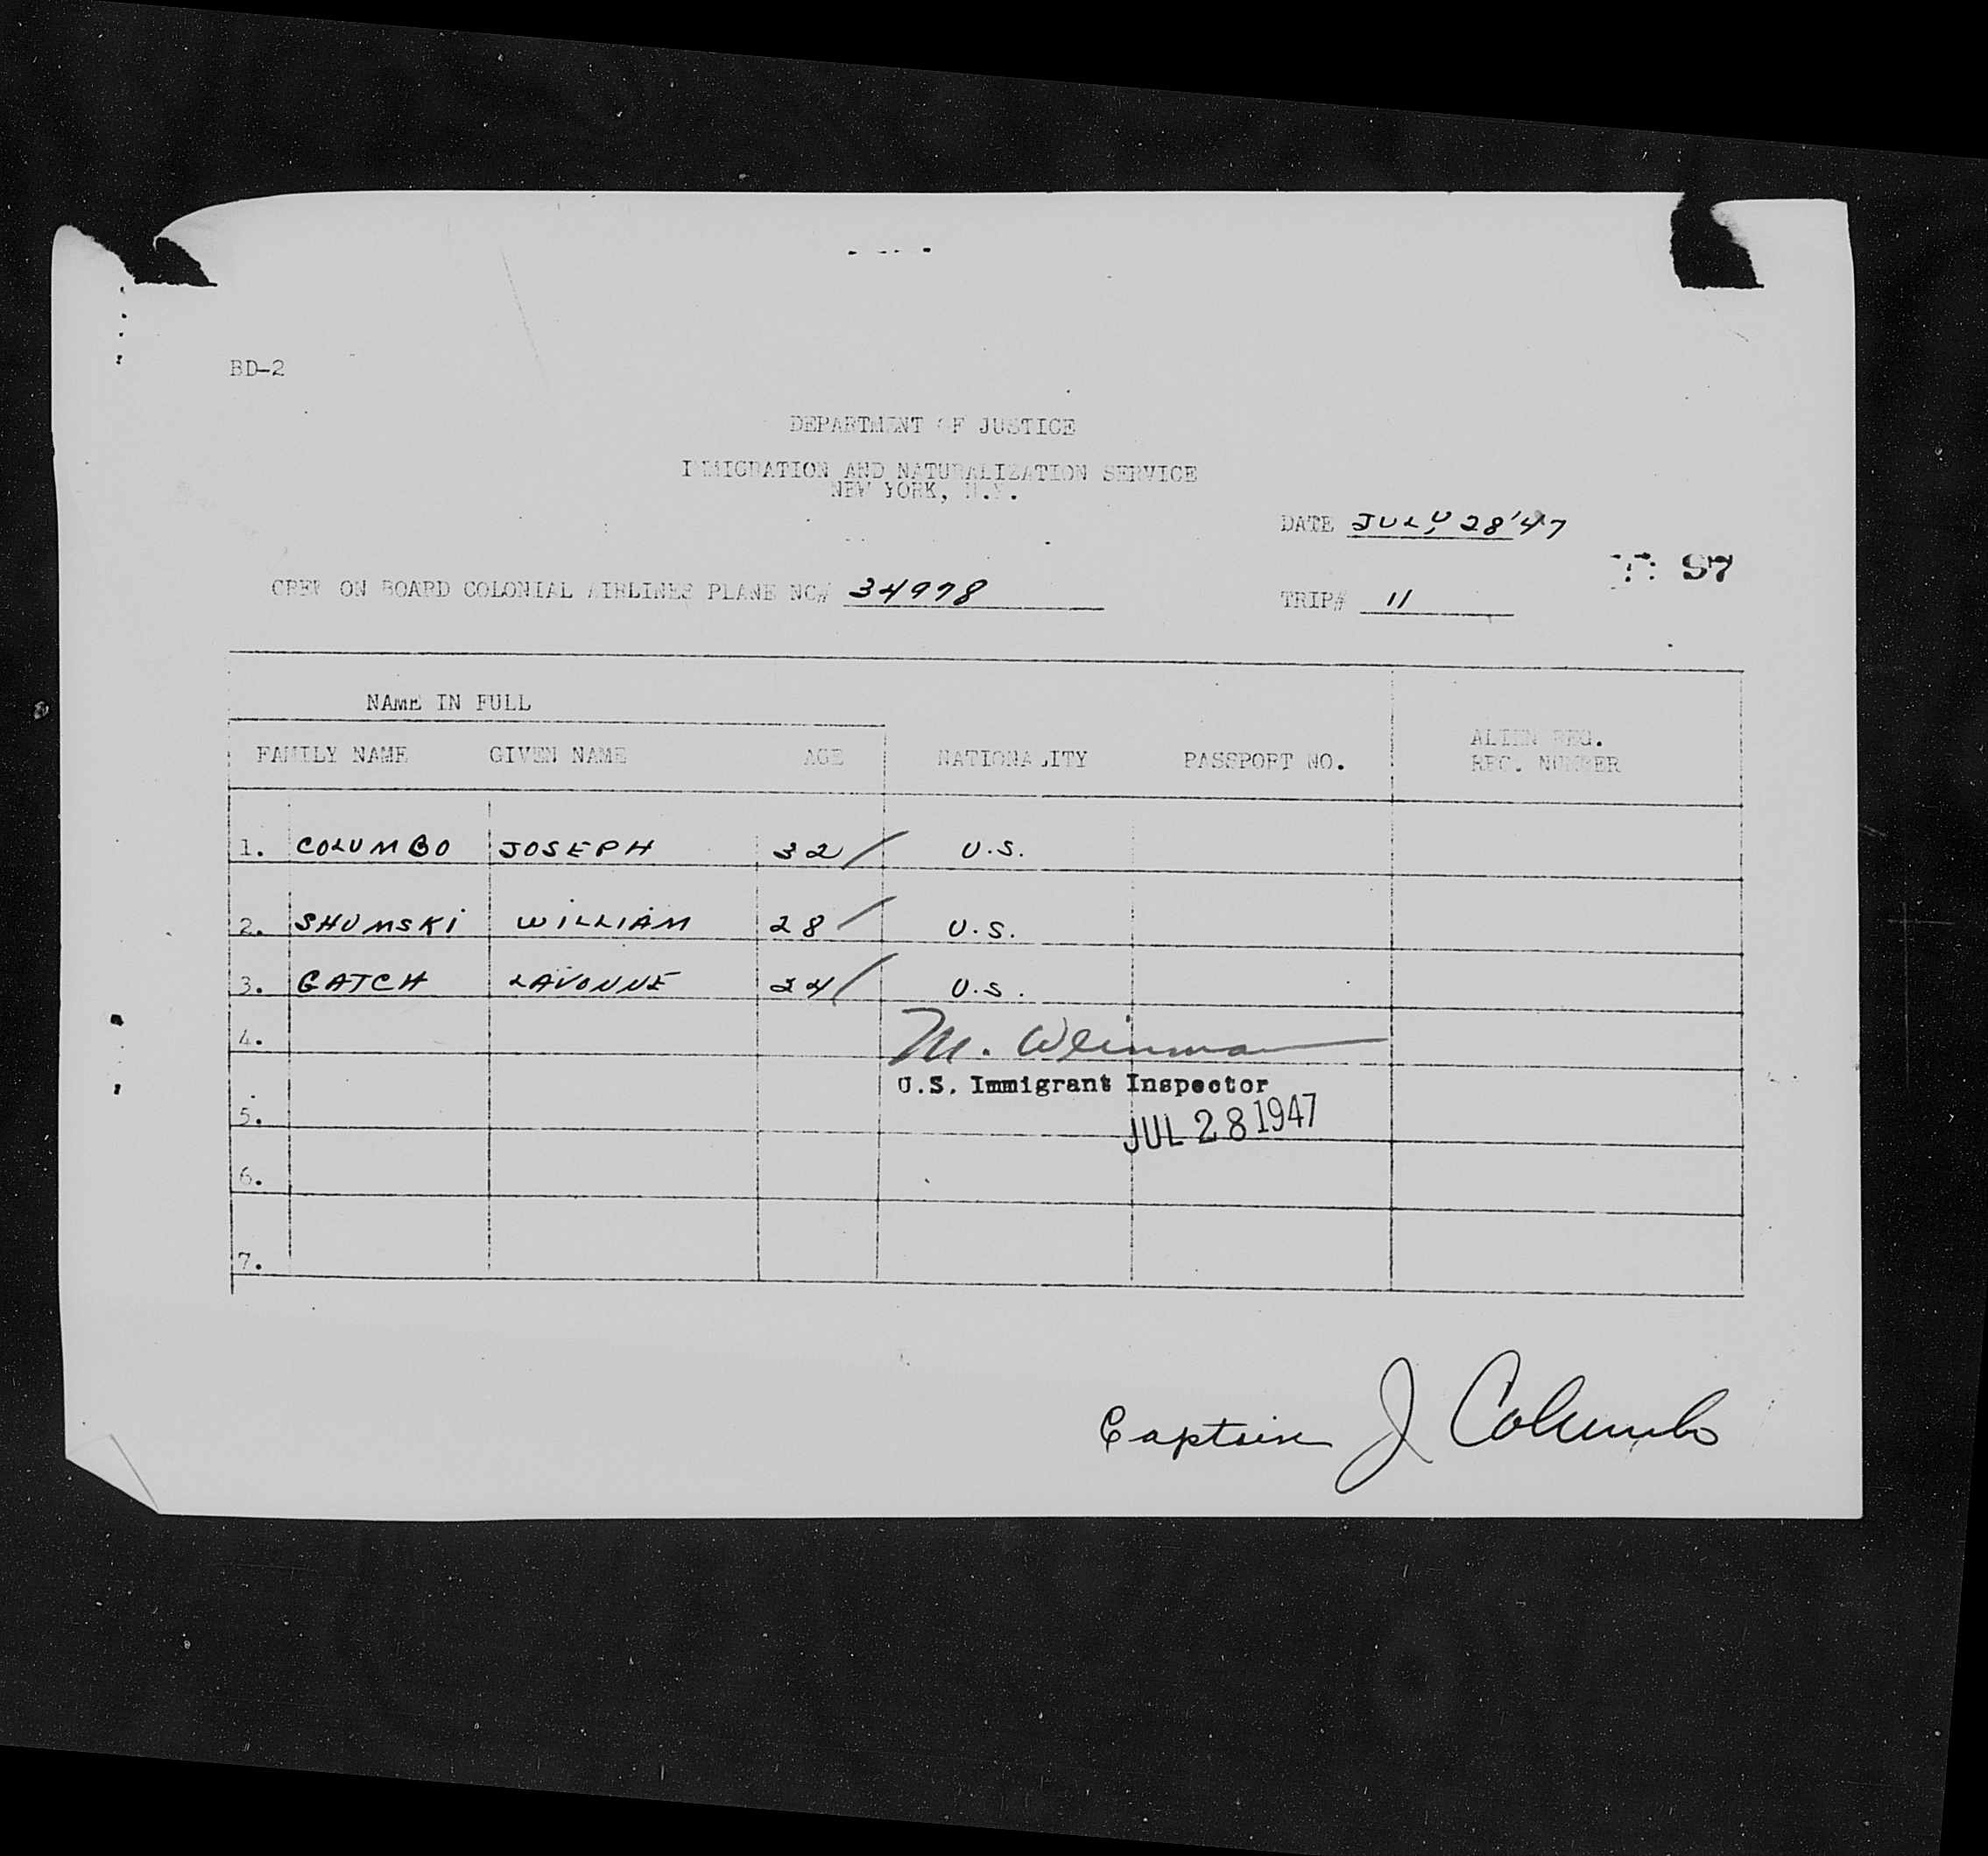 BD-2
DEPARTMENT OF JUSTICE
IMMIGRATION AND NATURALIZATION SERVICE
NEW YORK, N.Y.
DATE JULY 28'47
97
CREW ON BOARD COLONIAL AIRLINES PLANE NC# 34978
TRIP# 11
NAME IN FULL
FAMILY NAME GIVEN NAME AGE NATIONALITY PASSPORT NO. ALIEN REG. REC. NUMBER
1. COLUMBO JOSEPH 32/ U.S.
2. SHUMSKI WILLIAM 28/ U.S.
3. GATCH LAVONNE 24/ U.S.
4. M. Weinman
U.S. Immigrant Inspector
5. JUL 28 1947
6.
7.
Captain J Columbo